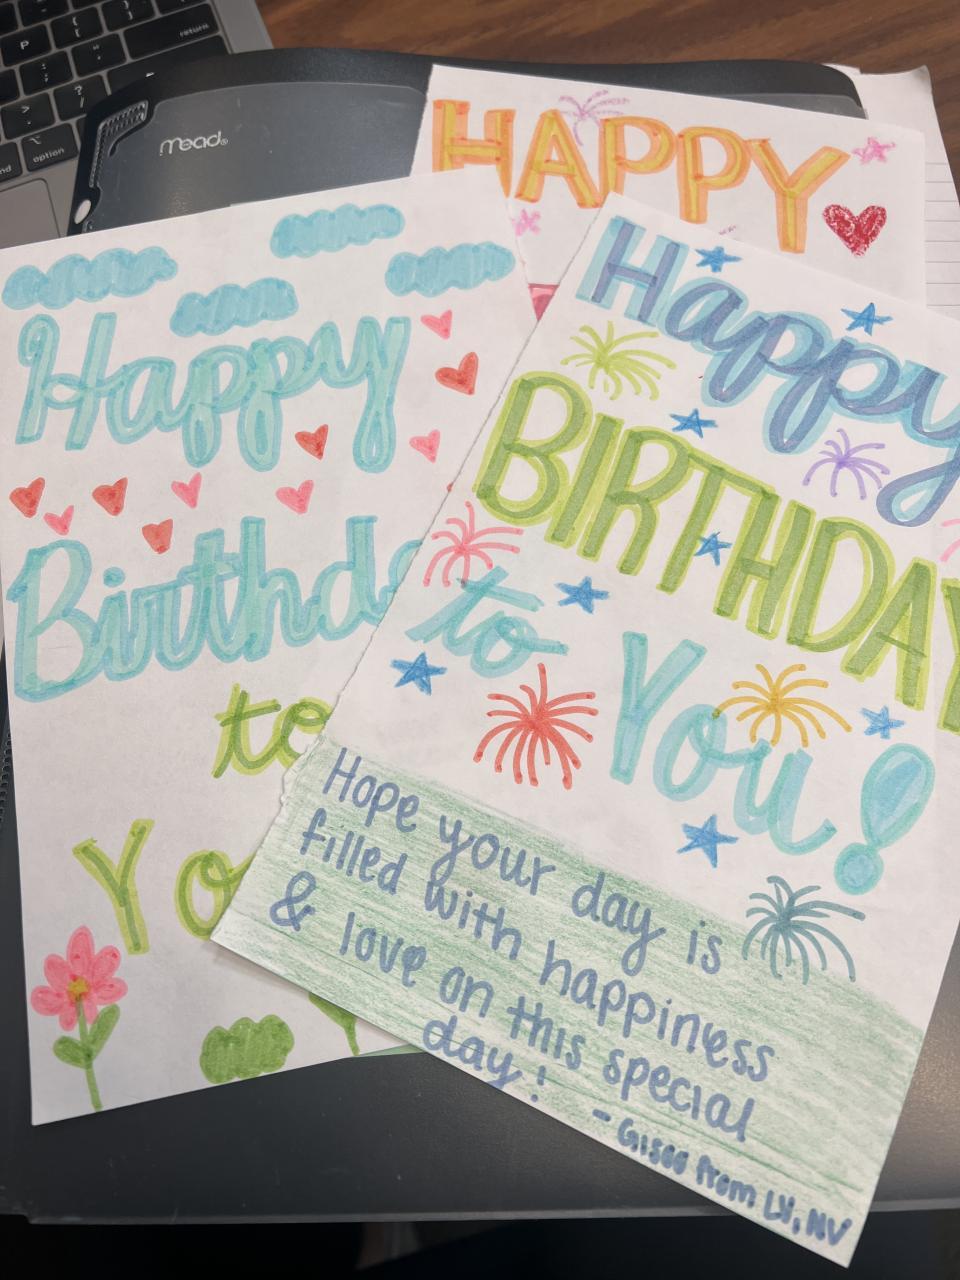 P
return
option
mead
HAPPY
Happy
Birthd
to
Yo
Happy
BIRTHDAY
to You!
Hope your day is
filled with happiness
& love on this special
day!
from LV, NV